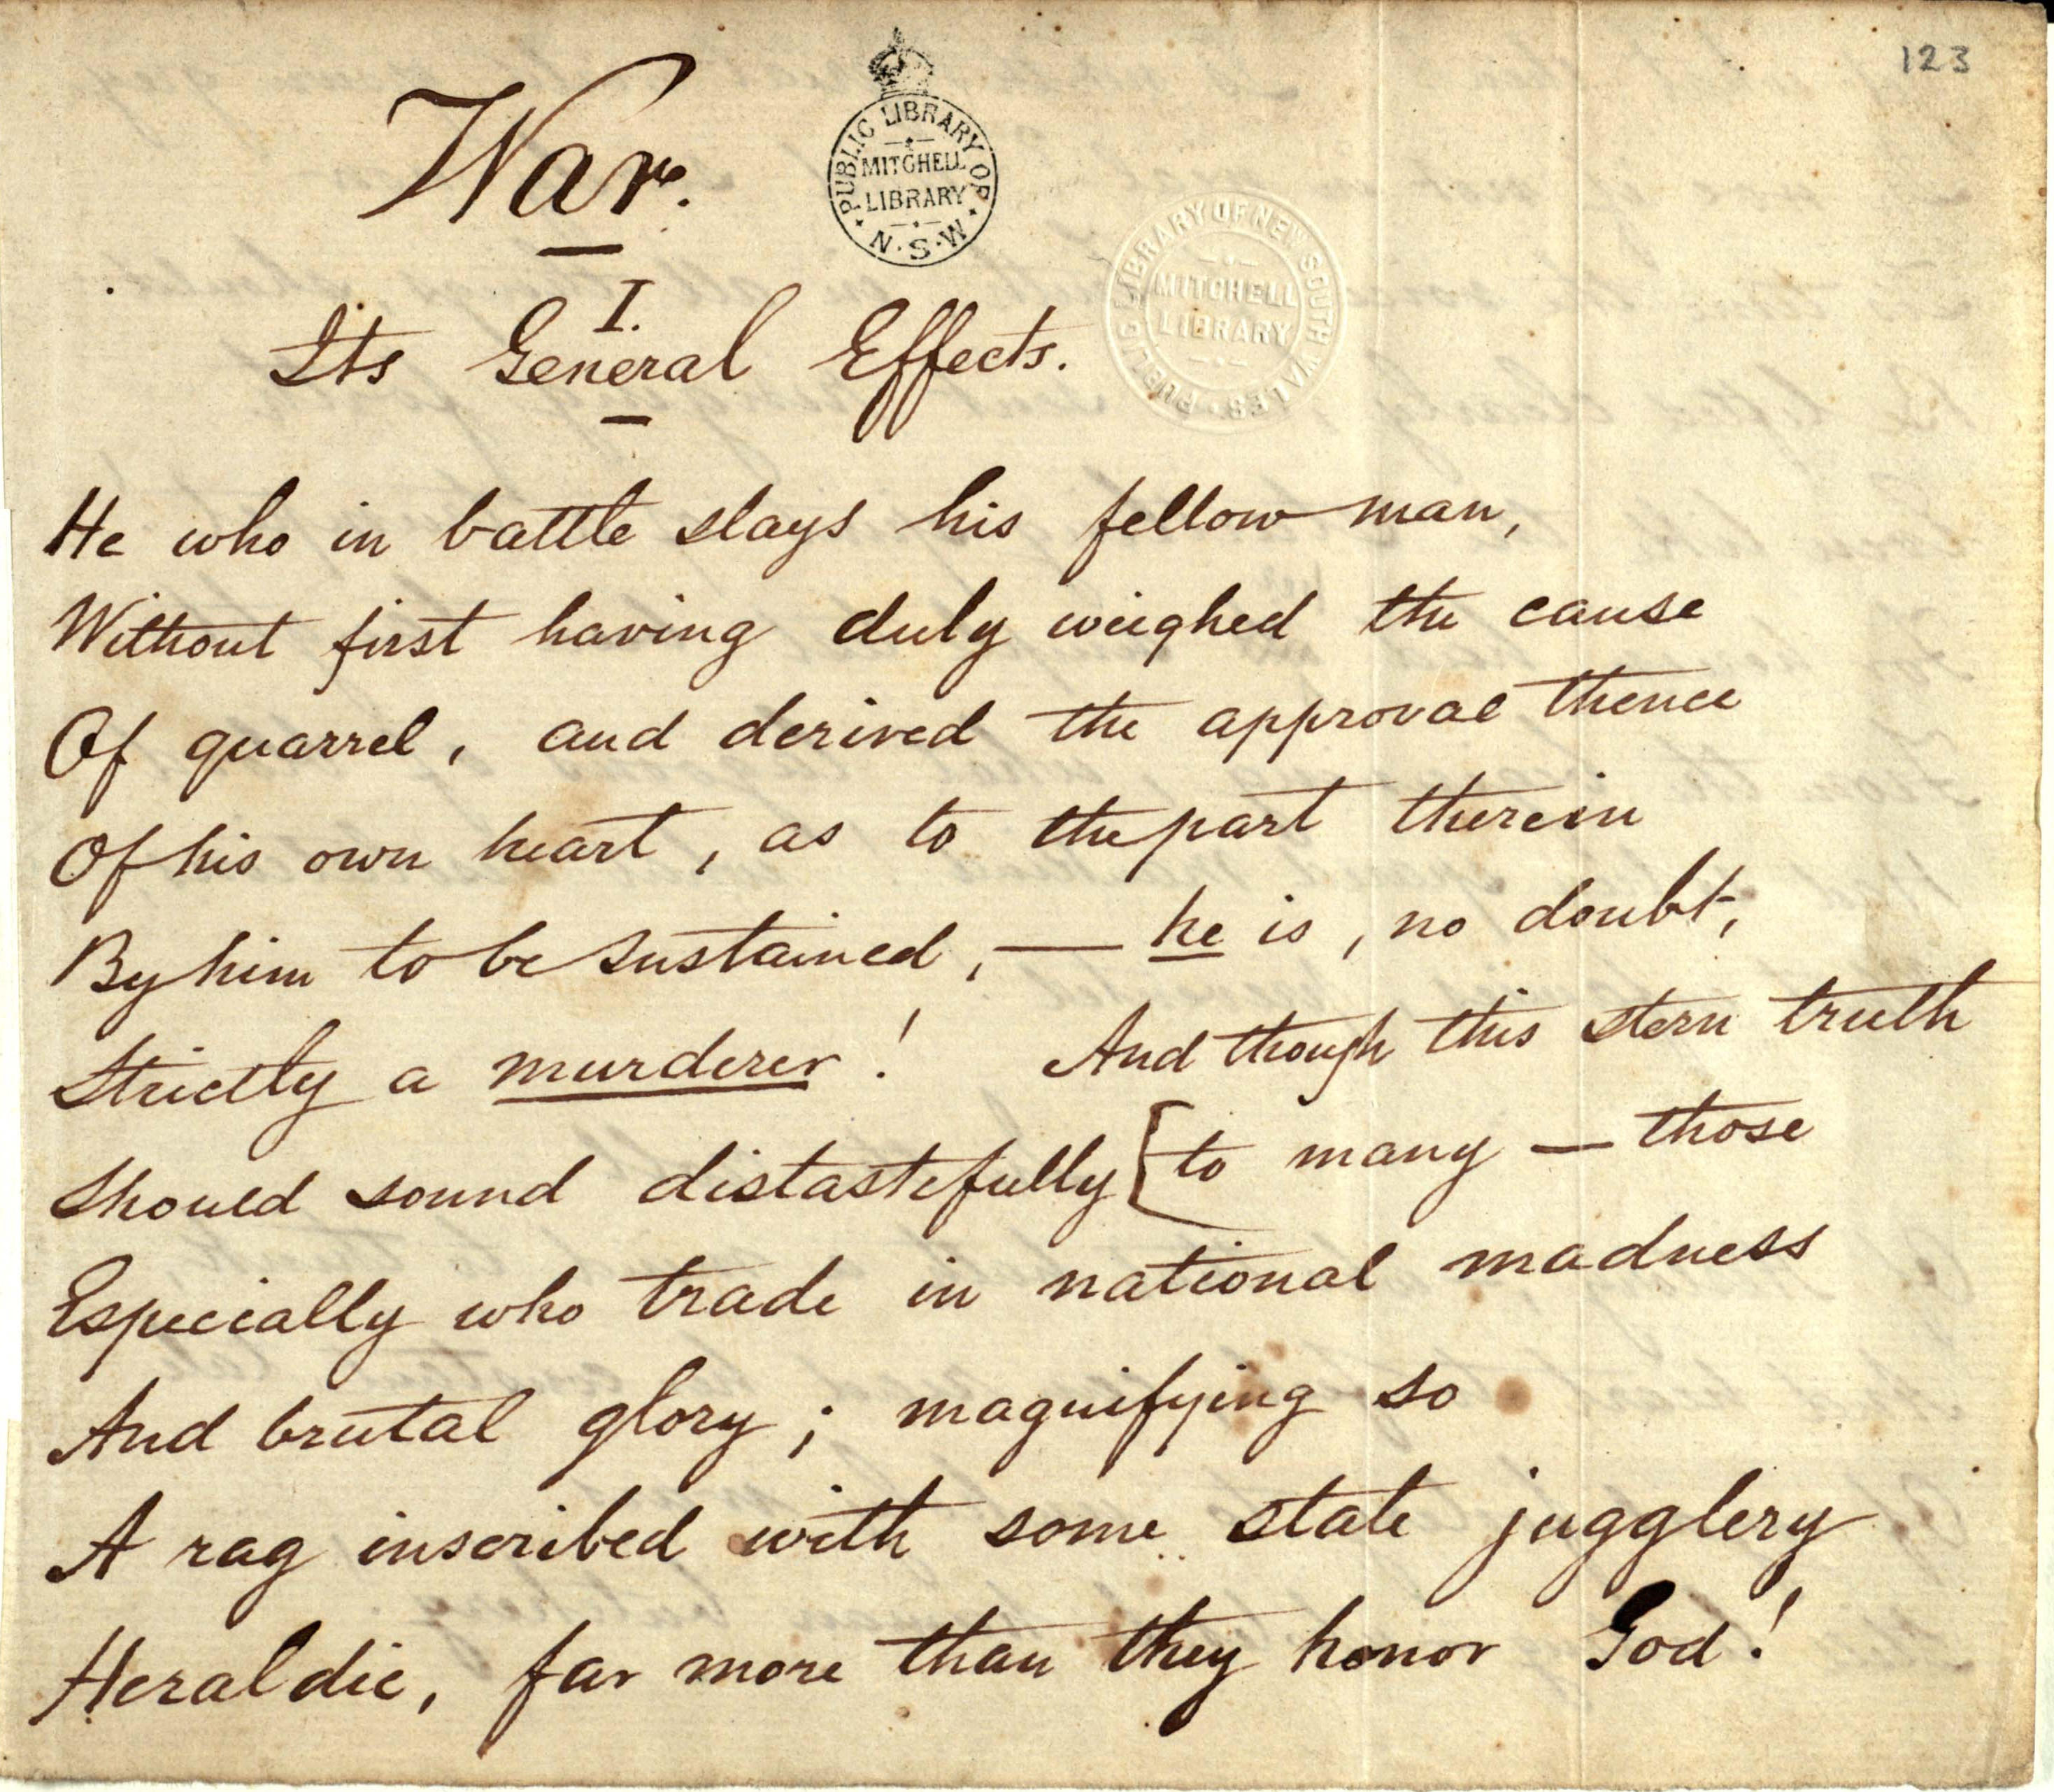 123
War.
PUBLIC LIBRARY OF
MITCHELL
LIBRARY
N.S.W.
PUBLIC LIBRARY OF NEW SOUTH WALES
MITCHELL
LIBRARY
I.
Its General Effects.
He who in battle slays his fellow man,
Without first having duly weighed the cause
Of quarrel, and derived the approval thence
Of his own heart, as to the part therein
By him to be sustained, — he is, no doubt,
Strictly a murderer! And though this stern truth
Should sound distastefully [to many — those
Especially who trade in national madness
And brutal glory; magnifying so
A rag inscribed with some state jugglery
Heraldic, far more than they honor God!